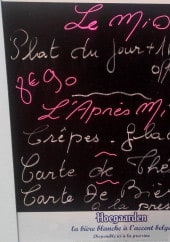 Le Mi
Plat du Jour + 1
7€90
L'Après Mi
Crêpes - Gla
Carte de Thé
Carte De Biè
à la pres
Hoegaarden
la bière blanche à l'accent belge